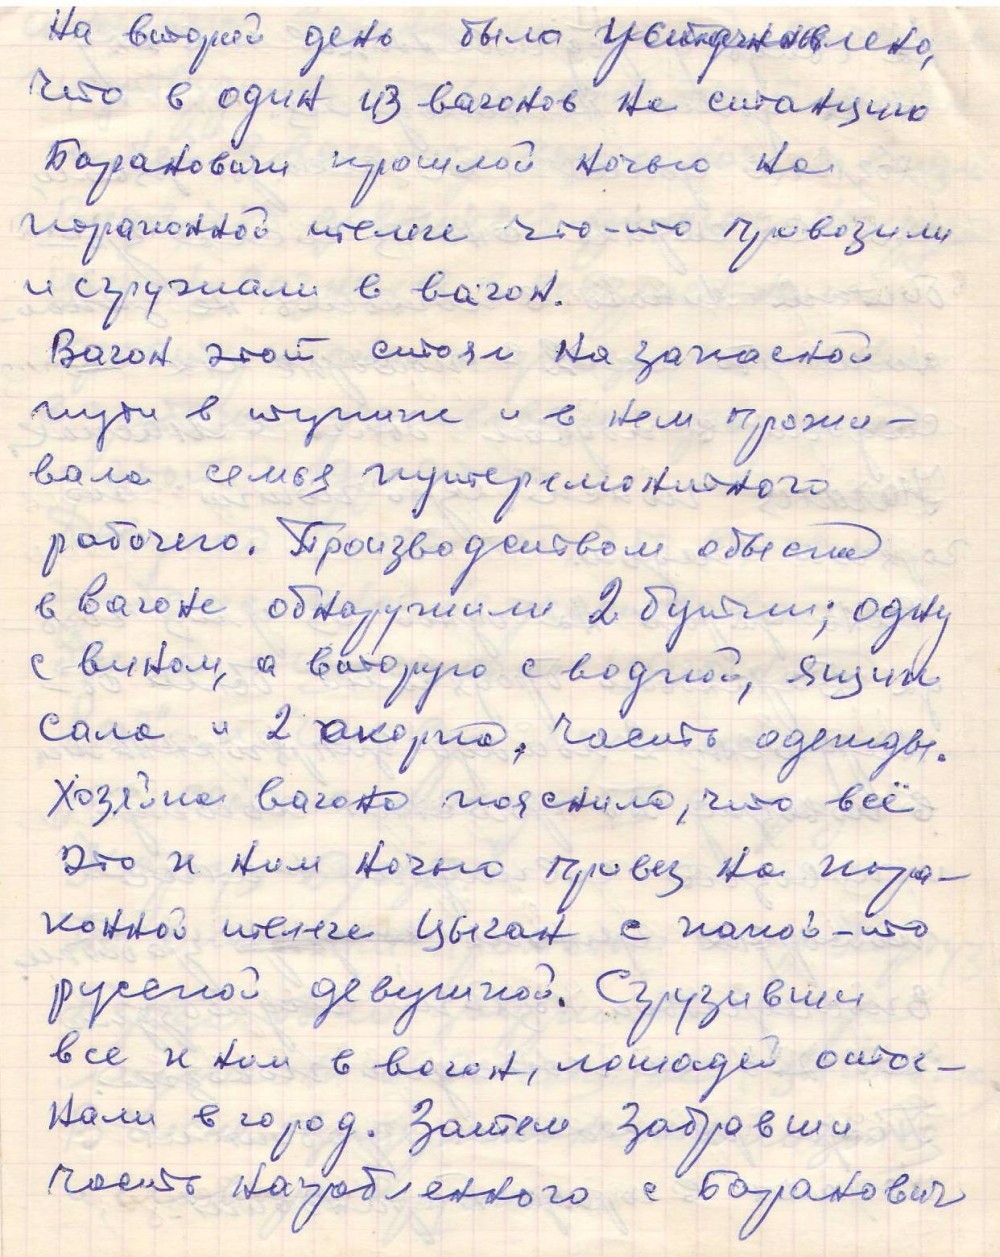 На второй день было установлено,
что в один из вагонов на станцию
Барановичи прошлой ночью на
пораконной телеге что-то привозили
и сгружали в вагон.
Вагон этот стоял на запасной
пути в тупике и в нем прожи-
вала семья путеремонтного
рабочего. Производством обыска
в вагоне обнаружили 2 бутыли; одну
с вином, а вторую с водкой, ящик
сала и 2 окорка, часть одежды.
Хозяйка вагона пояснила, что всё
это к ним ночью привез на пара-
конной телеге цыган с какой-то
русской девушкой. Сгрузивши
все к ним в вагон, лошадей отог-
нали в город. Затем забравши
часть награбленного с Баранович